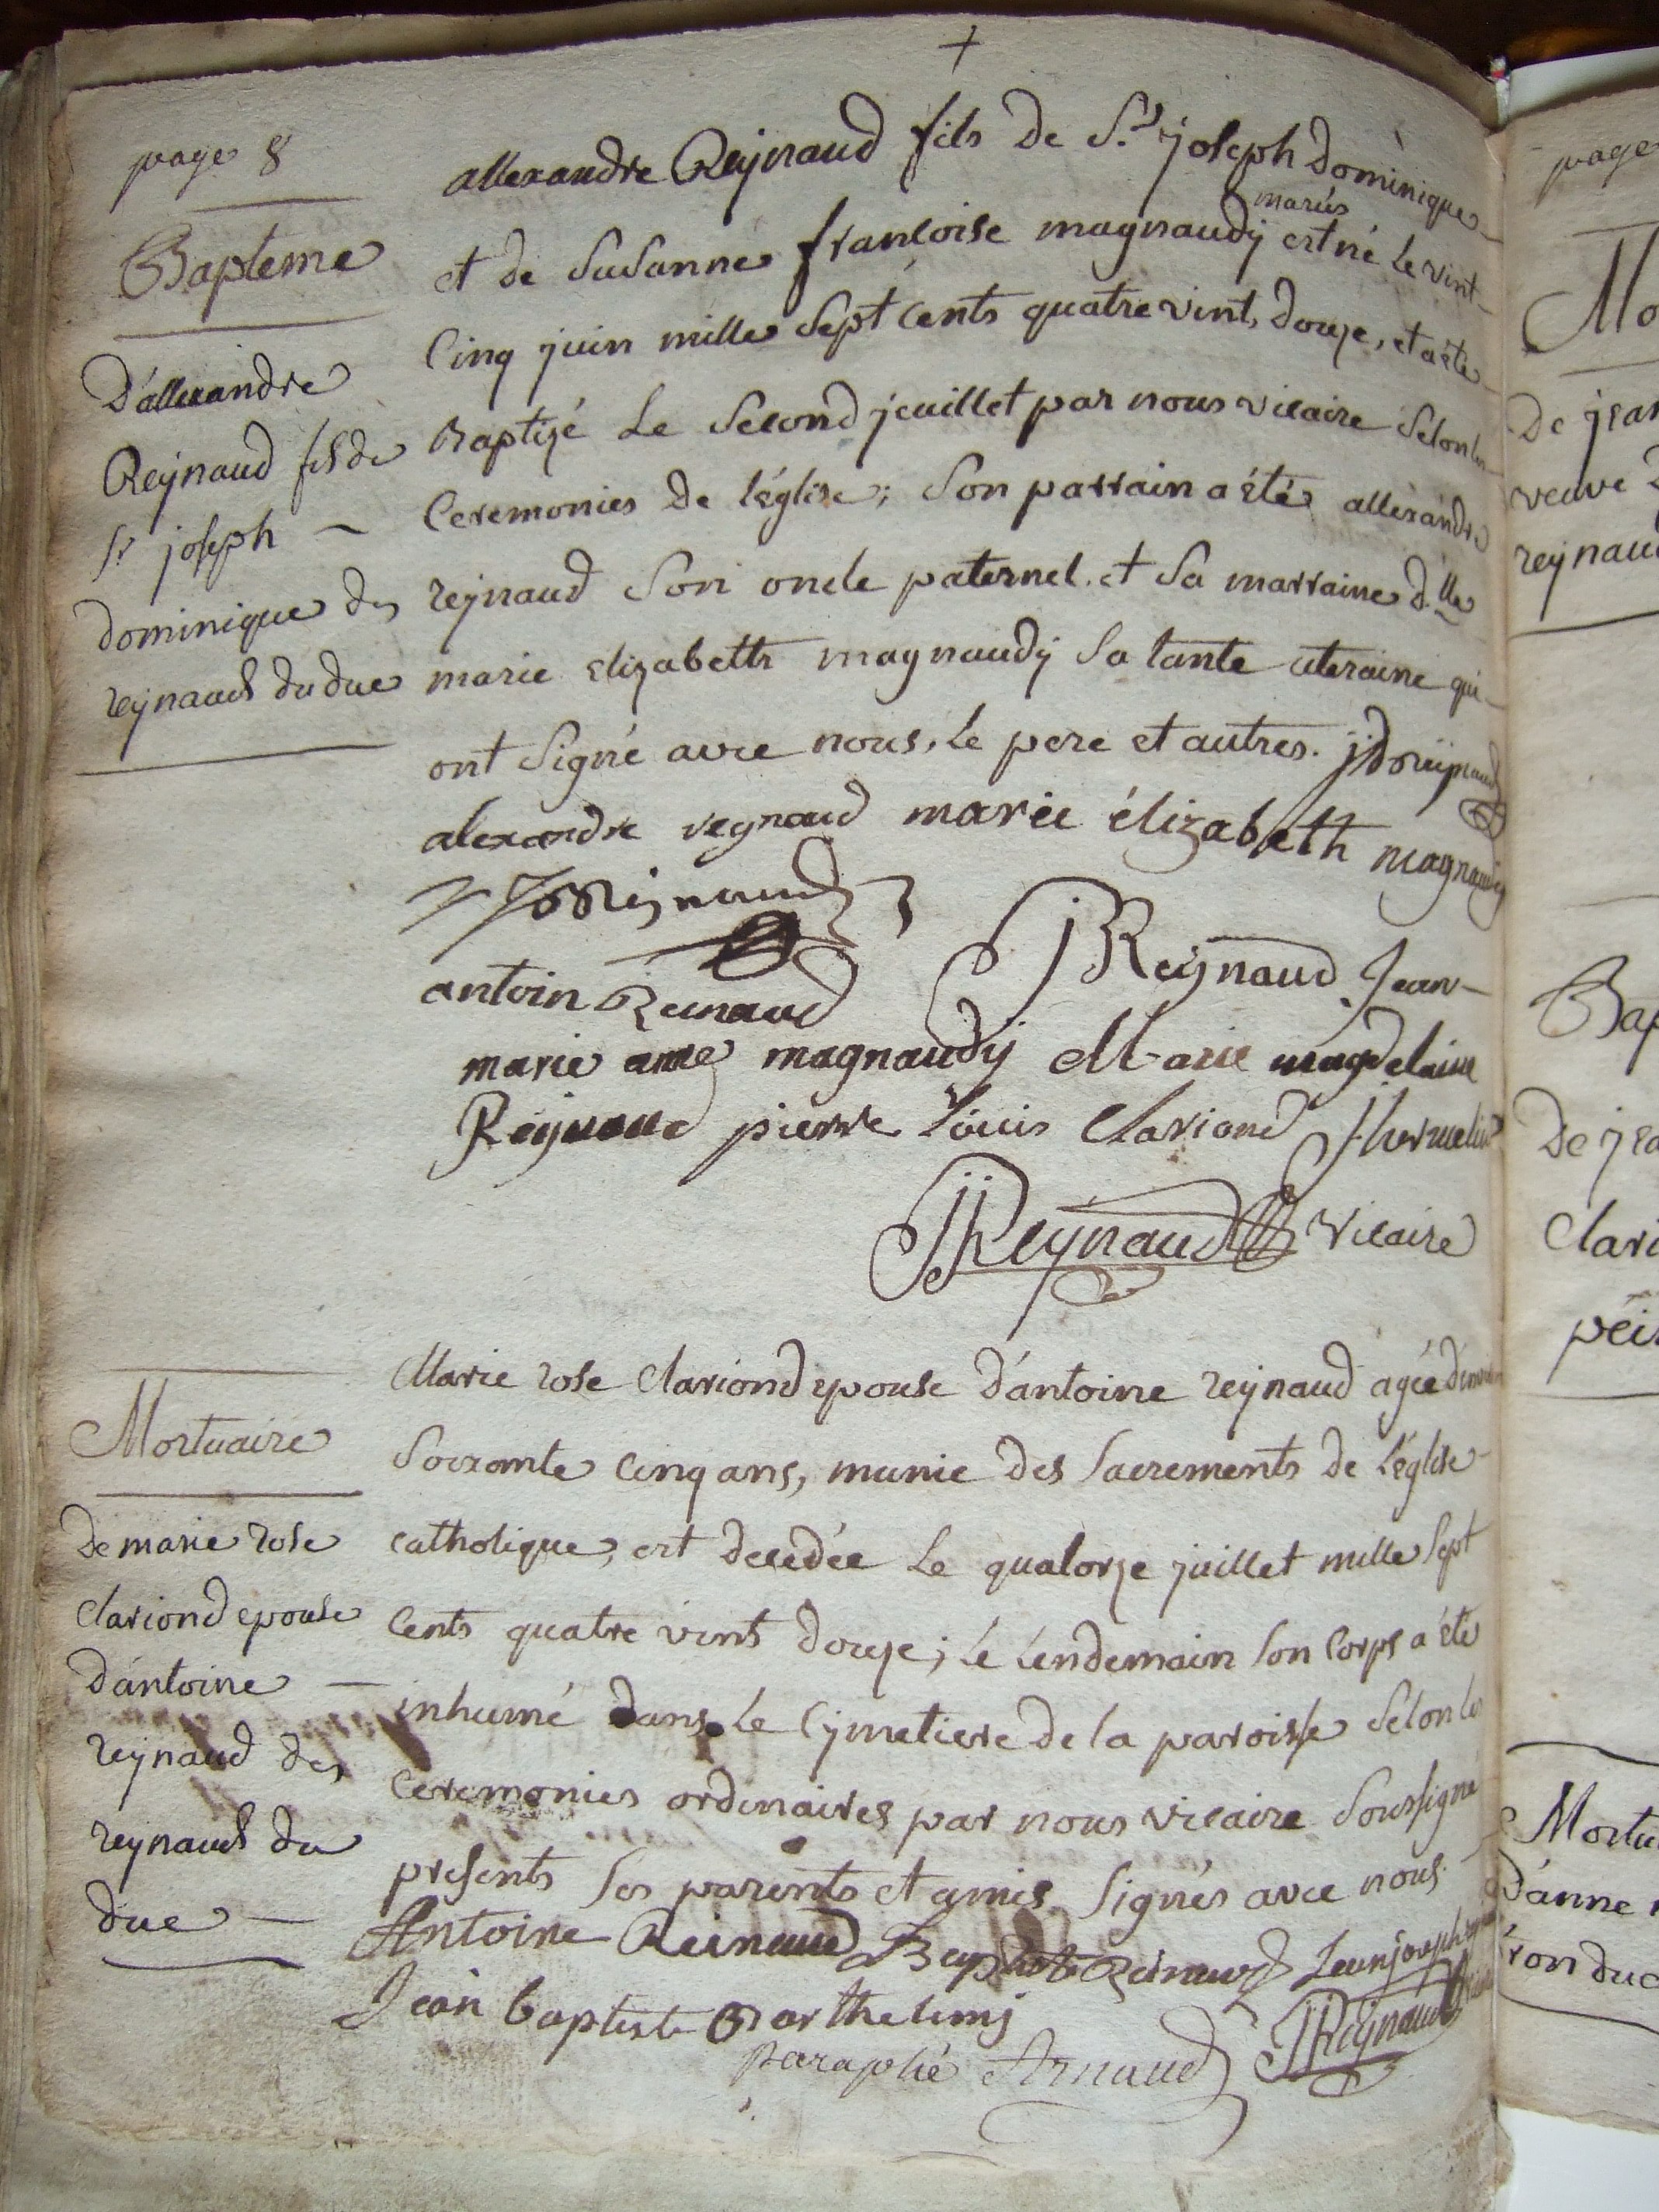 page 8
Bapteme
D'allexandre
Reynaud fils de
Sr joseph
dominique des
reynauds du duc
allexandre Reynaud fils de Sr joseph Dominique
mariés
et de Susanne françoise magnaudy est né le vint
Cinq juin mille Sept Cents quatre vint douze, et a été
Baptizé Le Second jeuillet par nous vicaire Selon les
Ceremonies de l'église; Son parrain a été allexandre
reynaud Son oncle paternel. et Sa marraine d.lle
marie elizabeth magnaudy Sa tante uteraine qui
ont Signé avec nous, le pere et autres. jdreynaud
alexandre reynaud marie élizabeth magnaudy
antoin Reinaud JReynaud Jean
marie magnaudy Marie magdelaine
Reynaud pierre louis Clariond
JJReynaud vicaire
Mortuaire
De marie rose
clariond epouse
d'antoine
reynaud des
reynauds du
duc
Marie rose Clariond epouse d'antoine reynaud agée d'environ
Soixante Cinq ans, munie des Sacrements de l'église
catholique, est decedée le quatorze juillet mille Sept
Cents quatre vint douze; le lendemain Son Corps a été
inhumé dans le Cymetiere de la paroisse Selon les
ceremonies ordinaires par nous vicaire Soussigné
presents Ses parents et amis Signés avec nous.
Antoine Reinaud Reinaud Jean joseph
Jean baptiste Barthelemy JJReynaud
Paraphé Arnaud
page
Mo
De jean
veuve
reynaud
Bap
De jea
Clari
pei
Mortu
D'anne
ron duc